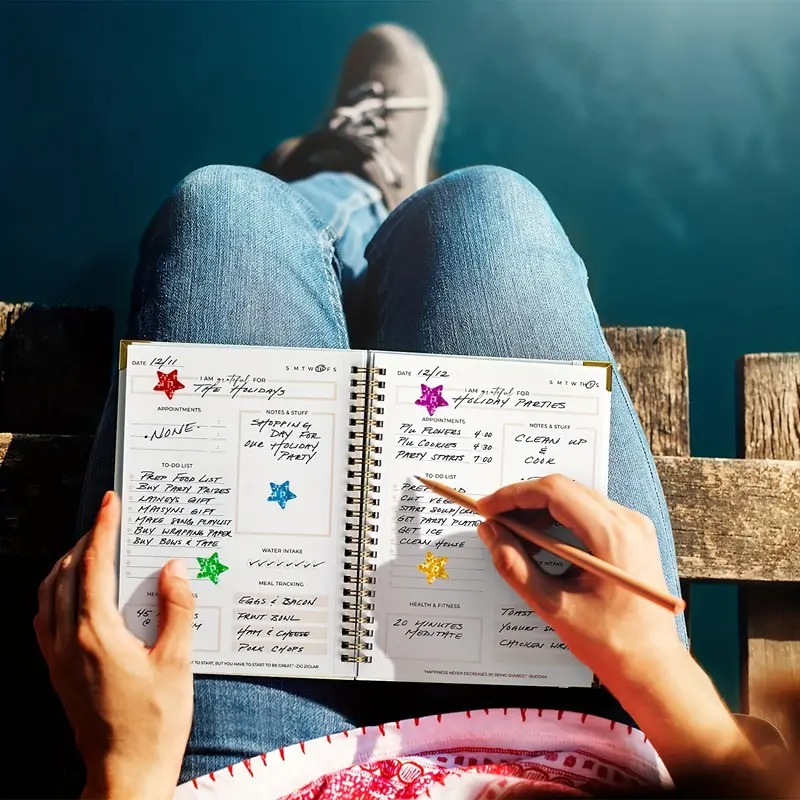 DATE 12/11
S M T W Th F S
I AM grateful FOR
THE HOLIDAYS
APPOINTMENTS
NONE
NOTES & STUFF
SHOPPING
DAY FOR
OUR HOLIDAY
PARTY
TO-DO LIST
PREP FOOD LIST
BUY PARTY PRIZES
LAINEYS GIFT
MAISYNS GIFT
MAKE SONG PLAYLIST
BUY WRAPPING PAPER
BUY BOWS & TAPE
WATER INTAKE
MEAL TRACKING
EGGS & BACON
FRUIT BOWL
HAM & CHEESE
PORK CHOPS
45
@
TO START, BUT YOU HAVE TO START TO BE GREAT." -ZIG ZIGLAR
DATE 12/12
S M T W Th F S
I AM grateful FOR
HOLIDAY PARTIES
APPOINTMENTS
P/U FLOWERS 4:00
P/U COOKIES 4:30
PARTY STARTS 7:00
NOTES & STUFF
CLEAN UP
&
COOK
TO-DO LIST
CUT
START SOUP/
GET PARTY
GET ICE
CLEAN HOUSE
HEALTH & FITNESS
20 MINUTES
MEDITATE
TOAST
YOGURT
CHICKEN
"HAPPINESS NEVER DECREASES BY BEING SHARED." -BUDDHA